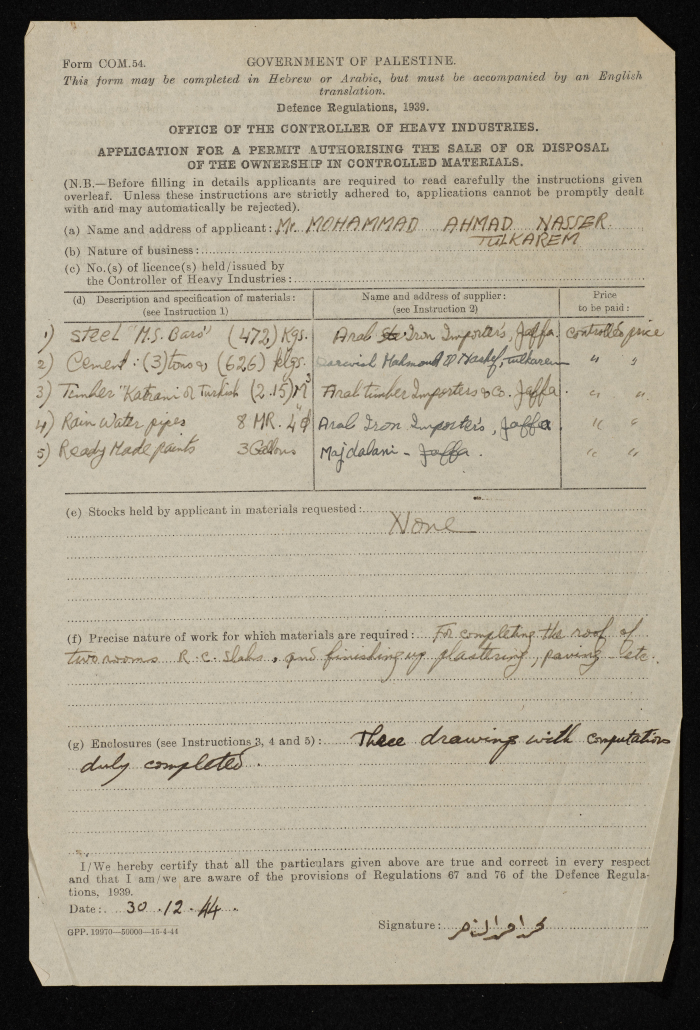 Form COM.54. GOVERNMENT OF PALESTINE.
This form may be completed in Hebrew or Arabic, but must be accompanied by an English
translation.
Defence Regulations, 1939.
OFFICE OF THE CONTROLLER OF HEAVY INDUSTRIES.
APPLICATION FOR A PERMIT AUTHORISING THE SALE OF OR DISPOSAL
OF THE OWNERSHIP IN CONTROLLED MATERIALS.
(N.B.—Before filling in details applicants are required to read carefully the instructions given
overleaf. Unless these instructions are strictly adhered to, applications cannot be promptly dealt
with and may automatically be rejected).
(a) Name and address of applicant: Mr. MOHAMMAD AHMAD NASSER
TULKAREM
(b) Nature of business:
(c) No.(s) of licence(s) held/issued by
the Controller of Heavy Industries:
(d) Description and specification of materials: Name and address of supplier: Price
(see Instruction 1) (see Instruction 2) to be paid:
1) Steel "M.S. Bars" (472) Kgs. Arab Iron Importers, Jaffa. Controlled price
2) Cement: (3) tons (626) klgs. Darwish Mahmoud Tulkarem " "
3) Timber "Katrani or Turkish (2.15) M3 Arab timber Importers & Co. Jaffa. " "
4) Rain Water pipes 8 MR. 4"ϕ Arab Iron Importers, Jaffa. " "
5) Ready Made paints 3 Gallons Majdalani - Jaffa. " "
(e) Stocks held by applicant in materials requested:
None
(f) Precise nature of work for which materials are required: For completing the roof of
two rooms R.C. Slabs, and finishing up plastering, paving etc.
(g) Enclosures (see Instructions 3, 4 and 5): Three drawings with computations
duly completed.
I/We hereby certify that all the particulars given above are true and correct in every respect
and that I am/we are aware of the provisions of Regulations 67 and 76 of the Defence Regula-
tions, 1939.
Date: 30.12.44.
Signature:
GPP. 19970—50000—15-4-44